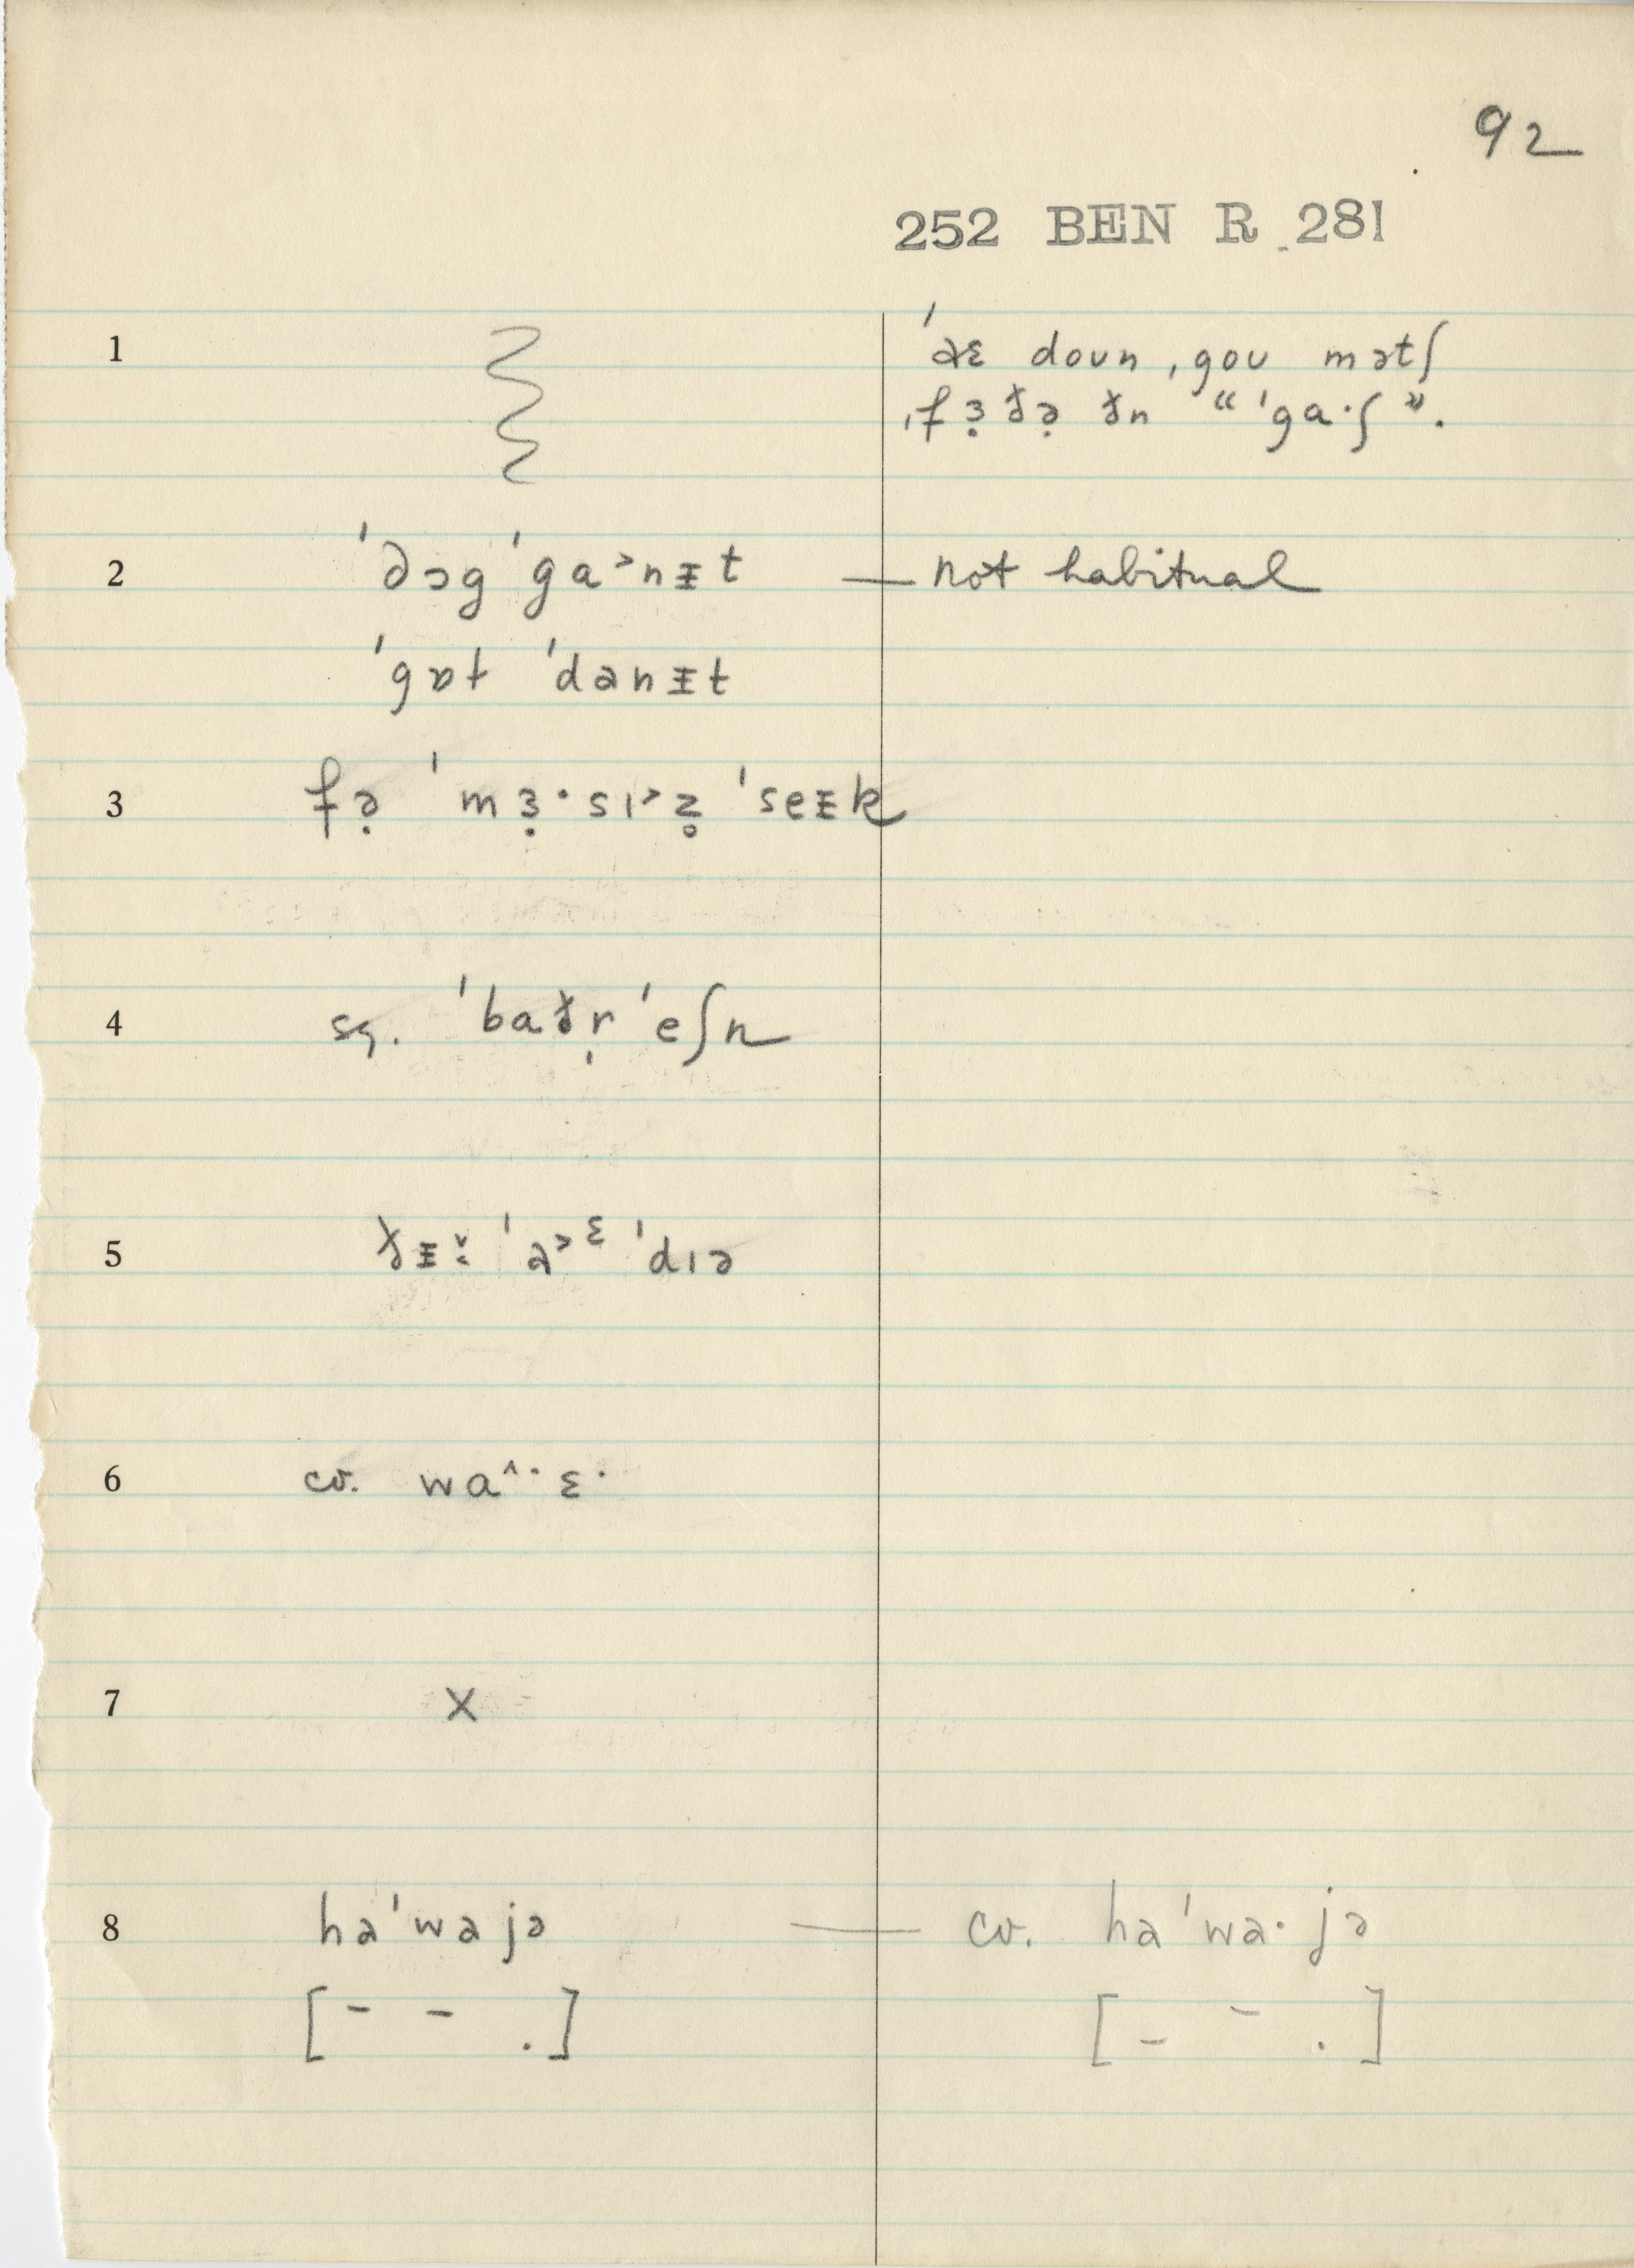 92
252 BEN R 281
1
ˈaɛ doun ˌgou mətʃ
ˌfɜ̣ðə̣ ðn “ˈga·ʃ”.
2 ˈdɔgˈga˃nᵻt — not habitual
ˈgɒt ˈdanᵻt
3 fə̣ ˈmɜ̣·sɪ˃z̥ ˈseᵻk
4 sq. ˈbaðr̩ ˈeʃn
5 ðᵻ ˈa˃ᵋ ˈdɪə
6 cv. wa^· ɛ·
7 X
8 haˈwajə — cv. haˈwa·jə
[¯ ¯ .] [_ ¯ .]